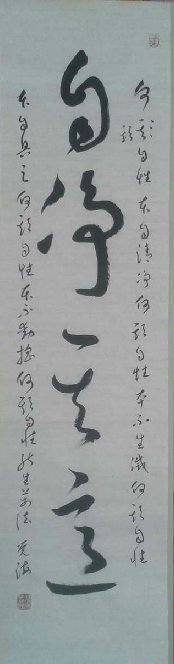 何期自性本自清净何期自性本不生滅何期自性
自净其意
本自具足何期自性本不動搖何期自性能生萬法